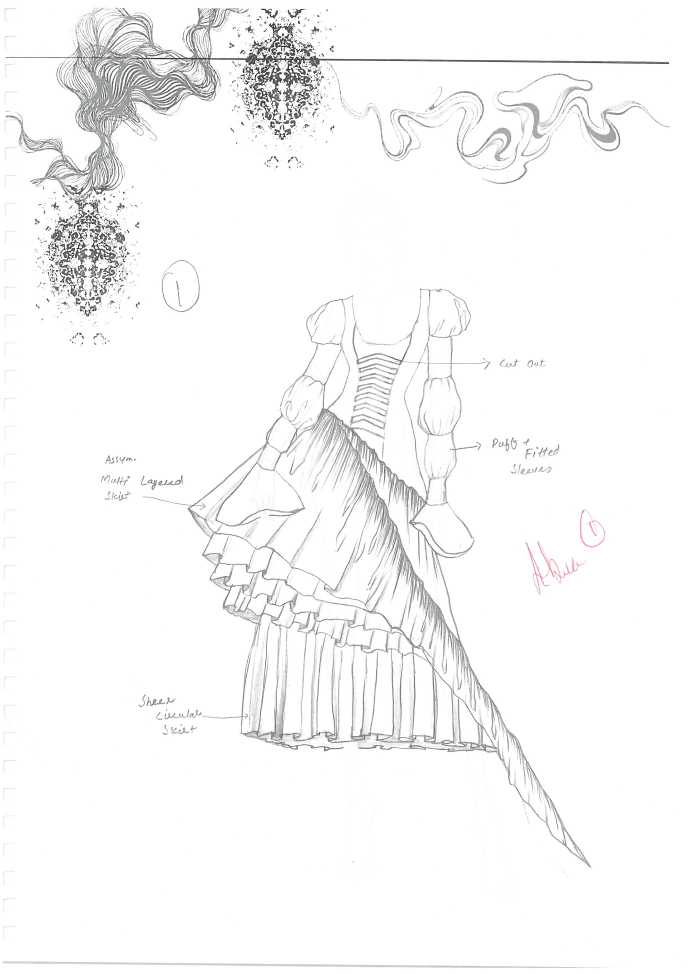 1
Cut Out
Puffy +
Fitted
Sleeves
Assym.
Multi Layered
Skirt
1
Sheer
Circular
Skirt